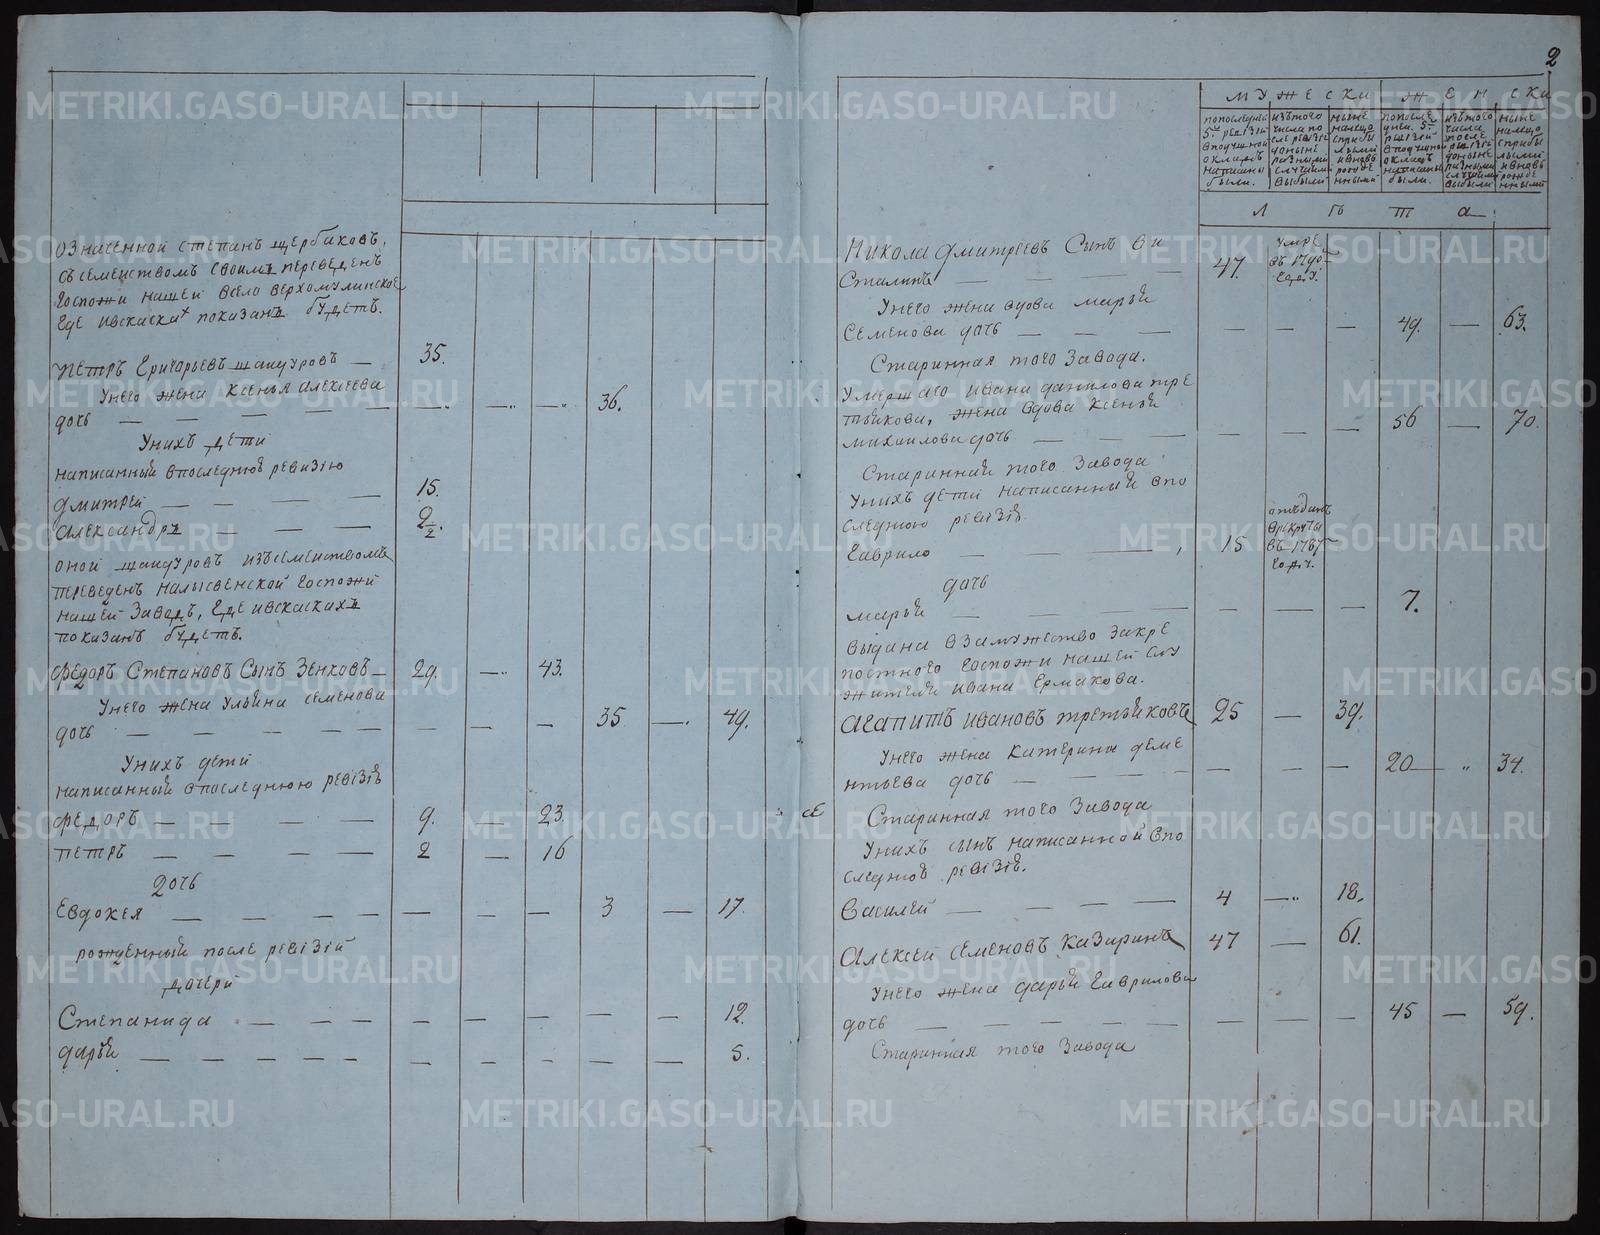 означенной степанъ щербаковъ,
съ семействомъ своимъ переведенъ
госпожи нашей всело верхомулинское
где ивскаскахъ показанъ будетъ.
петръ Григорьевъ шандуровъ — 35.
Унего жена Ксенья алексеева
дочь — — — — — — — 36.
Унихъ дети
написанный впоследнюю ревизïю
дмитрей — — — 15.
александръ — — — 2 1/2.
оной шандуровъ изъсемействомъ
переведенъ налысвенской госпожи
нашей заводъ, где ивскаскахъ
показанъ будетъ.
федоръ Степановъ Сынъ Зенковъ — 29. — 43.
Унего жена Ульяна семенова
дочь — — — — — — — — 35 — 49.
Унихъ дети
написанный впоследнюю ревизïю
федоръ — — — — 9. — 23.
петръ — — — — 2 — 16
дочь
Евдокея — — — — — — — 3 — 17.
рожденный после ревизïй
дочери
Степанида — — — — — — — — — 12.
дарья — — — — — — — — — — 5.
2
МУЖЕСКИ ЖЕНСКИ
попоследней 5й ревизïй вподушной окладъ написаны были.
изътого числа после ревизïй доныне разными случаями выбыли
ныне налицо сприбылыми ивновь рожденными
попоследней 5й ревизïй вподушной окладъ написаны были.
изътого числа после ревизïй доныне разными случаями выбыли
ныне налицо сприбылыми ивновь рожденными
Лѣта:
Никола дмитреевъ Сынъ
Сталинъ — — — 47. умре въ годѣ.
Унего жена вдова марья
Семенова дочь — — — — — — 49. — 63.
Старинная того завода.
Умершаго ивана данилова тре
тьякова, жена вдова Ксенья
михаилова дочь — — — — — — 56 — 70.
Стариннай того завода
Унихъ дети написанный впо
следнюю ревизïю
Гаврило — — — 15 отъданъ врекруты въ 1787 годѣ.
дочь
марья — — — — — — 7.
выдана взамужество закре
постного госпожи нашей слу
жителя ивана Ермакова.
агапитъ ивановъ третьяковъ 25 — 39.
Унего жена катерина деме
нтьева дочь — — — — — — 20 — 34.
Старинная того завода
Унихъ сынъ написанной впо
следнюю ревизïю.
василей — — — — 4 — 18.
алексей семеновъ казаринъ 47 — 61.
Унего жена дарья гаврилова
дочь — — — — — — — — 45 — 59.
Старинная того завода
METRIKI.GASO-URAL.RU